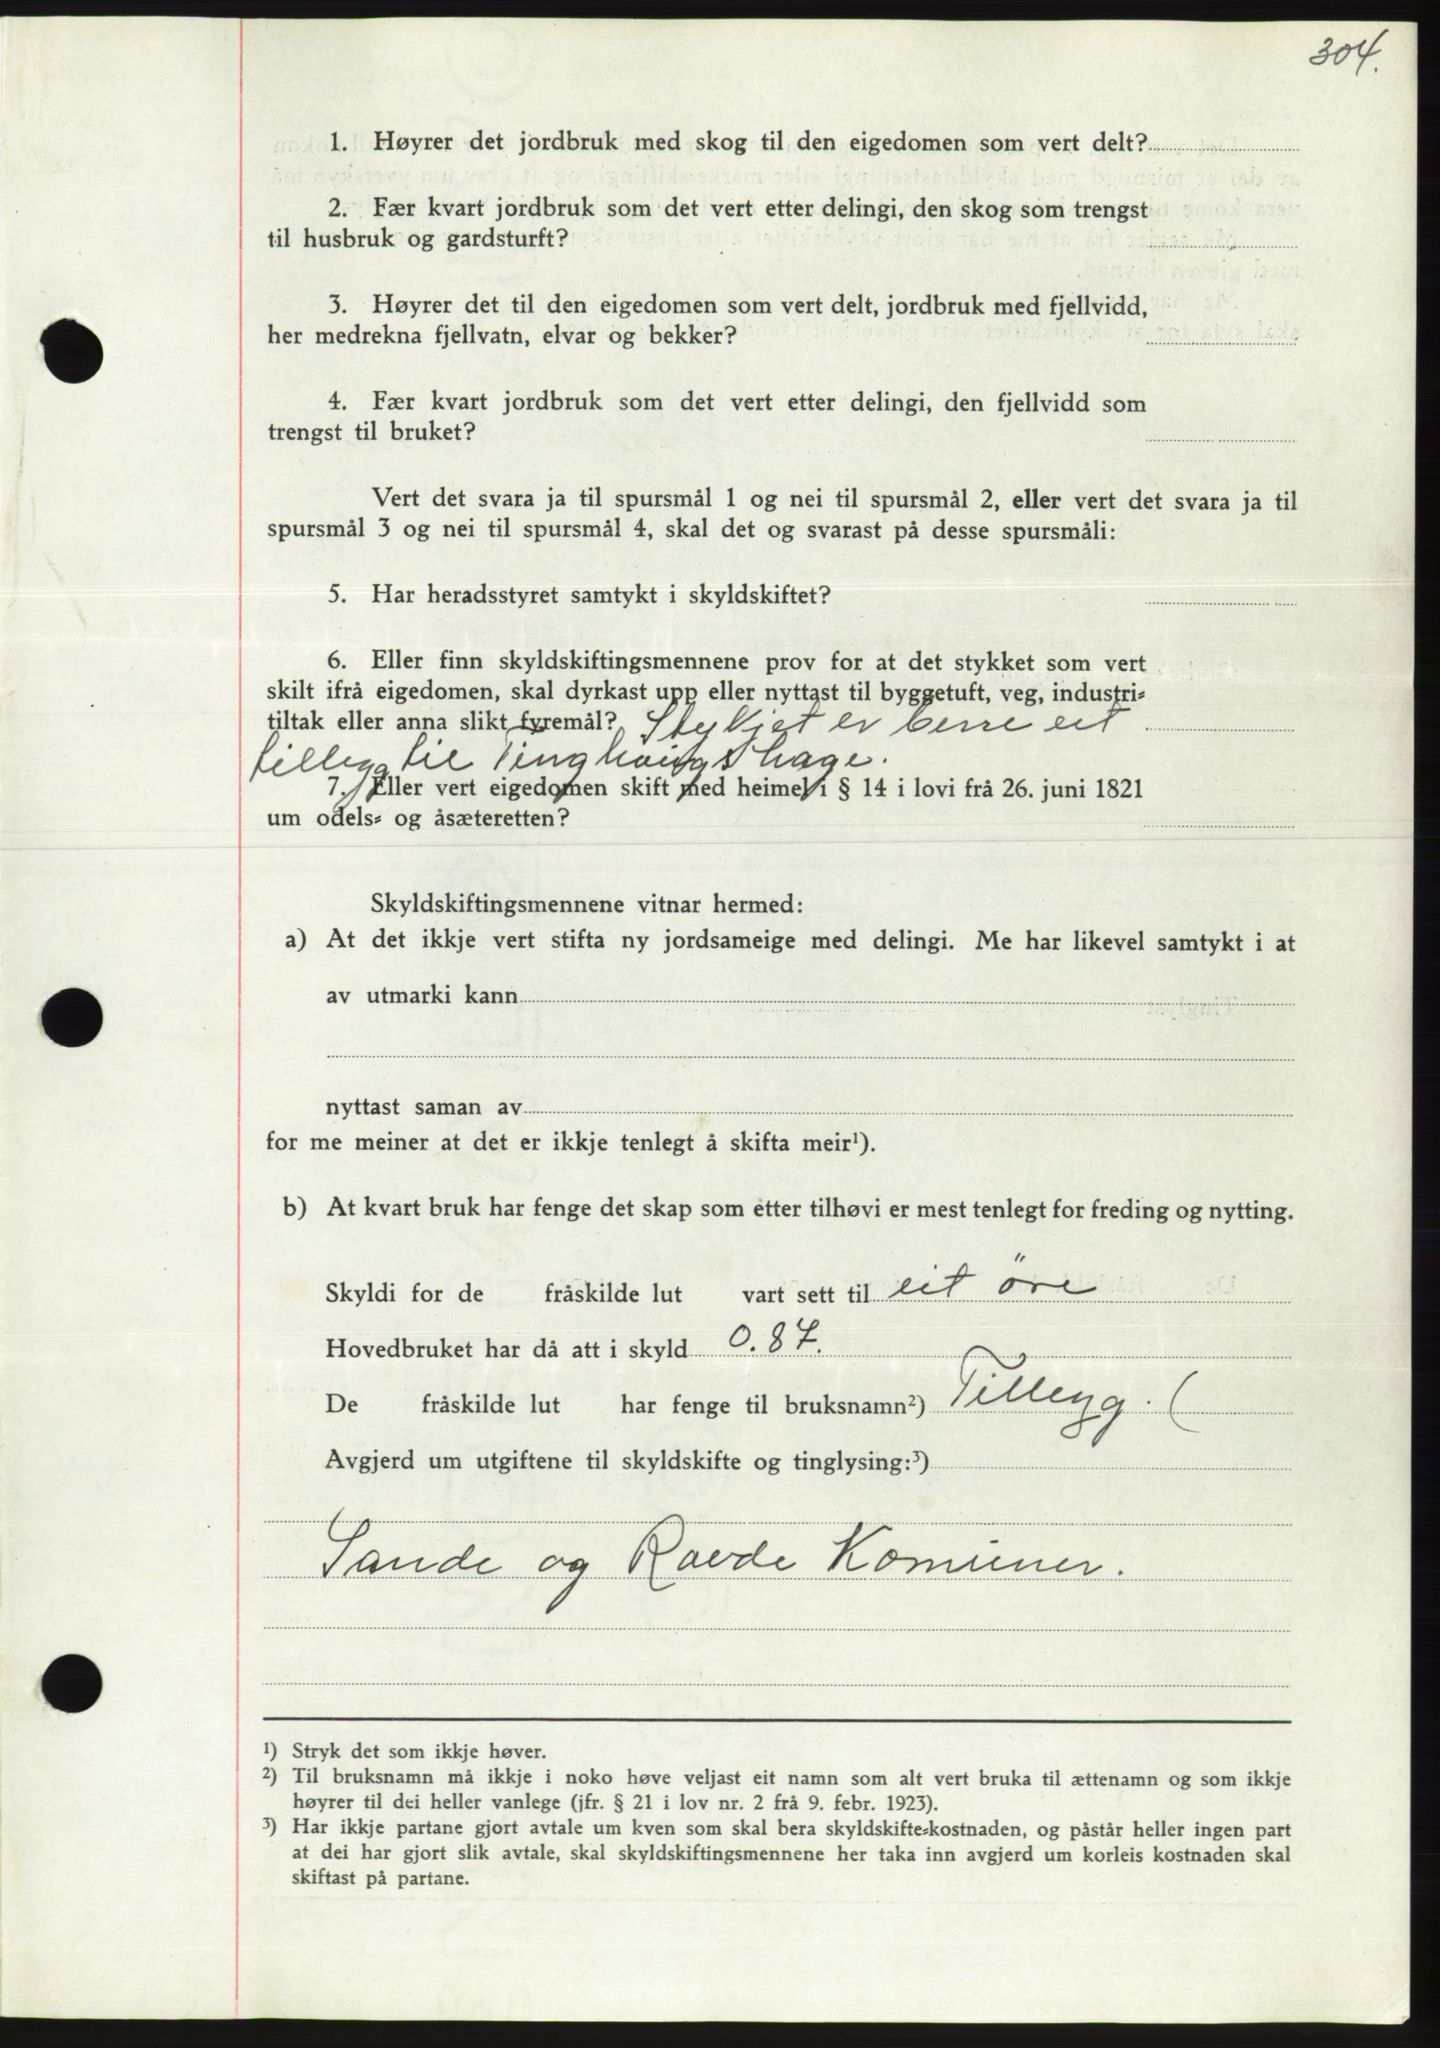 304.
1. Høyrer det jordbruk med skog til den eigedomen som vert delt?
2. Fær kvart jordbruk som det vert etter delingi, den skog som trengst
til husbruk og gardsturft?
3. Høyrer det til den eigedomen som vert delt, jordbruk med fjellvidd,
her medrekna fjellvatn, elvar og bekker?
4. Fær kvart jordbruk som det vert etter delingi, den fjellvidd som
trengst til bruket?
Vert det svara ja til spursmål 1 og nei til spursmål 2, eller vert det svara ja til
spursmål 3 og nei til spursmål 4, skal det og svarast på desse spursmåli:
5. Har heradsstyret samtykt i skyldskiftet?
6. Eller finn skyldskiftingsmennene prov for at det stykket som vert
skilt ifrå eigedomen, skal dyrkast upp eller nyttast til byggetuft, veg, industri-
tiltak eller anna slikt fyremål? Stykjet er berre eit
tillegg til Tinghaugshage.
7. Eller vert eigedomen skift med heimel i § 14 i lovi frå 26. juni 1821
um odels- og åsæteretten?
Skyldskiftingsmennene vitnar hermed:
a) At det ikkje vert stifta ny jordsameige med delingi. Me har likevel samtykt i at
av utmarki kann
nyttast saman av
for me meiner at det er ikkje tenlegt å skifta meir¹).
b) At kvart bruk har fenge det skap som etter tilhøvi er mest tenlegt for freding og nytting.
Skyldi for de fråskilde lut vart sett til eit öre
Hovedbruket har då att i skyld 0.87.
De fråskilde lut har fenge til bruksnamn²) Tillegg. (
Avgjerd um utgiftene til skyldskifte og tinglysing:³)
Sande og Rovde Komuner.
¹) Stryk det som ikkje høver.
²) Til bruksnamn må ikkje i noko høve veljast eit namn som alt vert bruka til ættenamn og som ikkje
høyrer til dei heller vanlege (jfr. § 21 i lov nr. 2 frå 9. febr. 1923).
³) Har ikkje partane gjort avtale um kven som skal bera skyldskifte-kostnaden, og påstår heller ingen part
at dei har gjort slik avtale, skal skyldskiftingsmennene her taka inn avgjerd um korleis kostnaden skal
skiftast på partane.